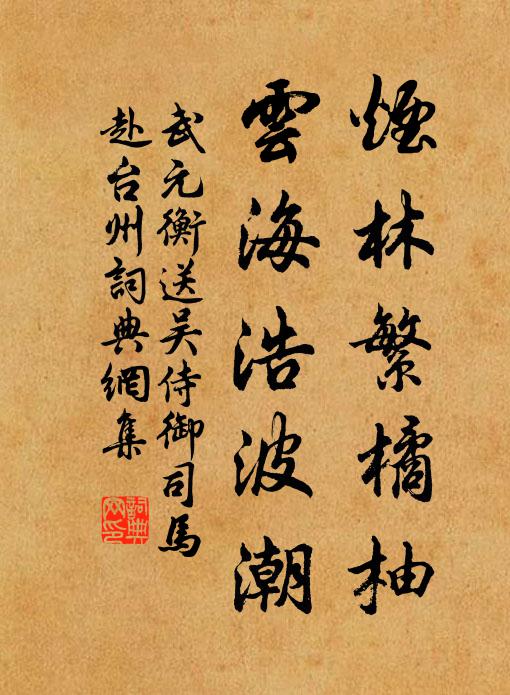 煙林繁橘柚
雲海浩波潮
武元衡送吴侍御司馬
赴台州詞典網集
詞典网印